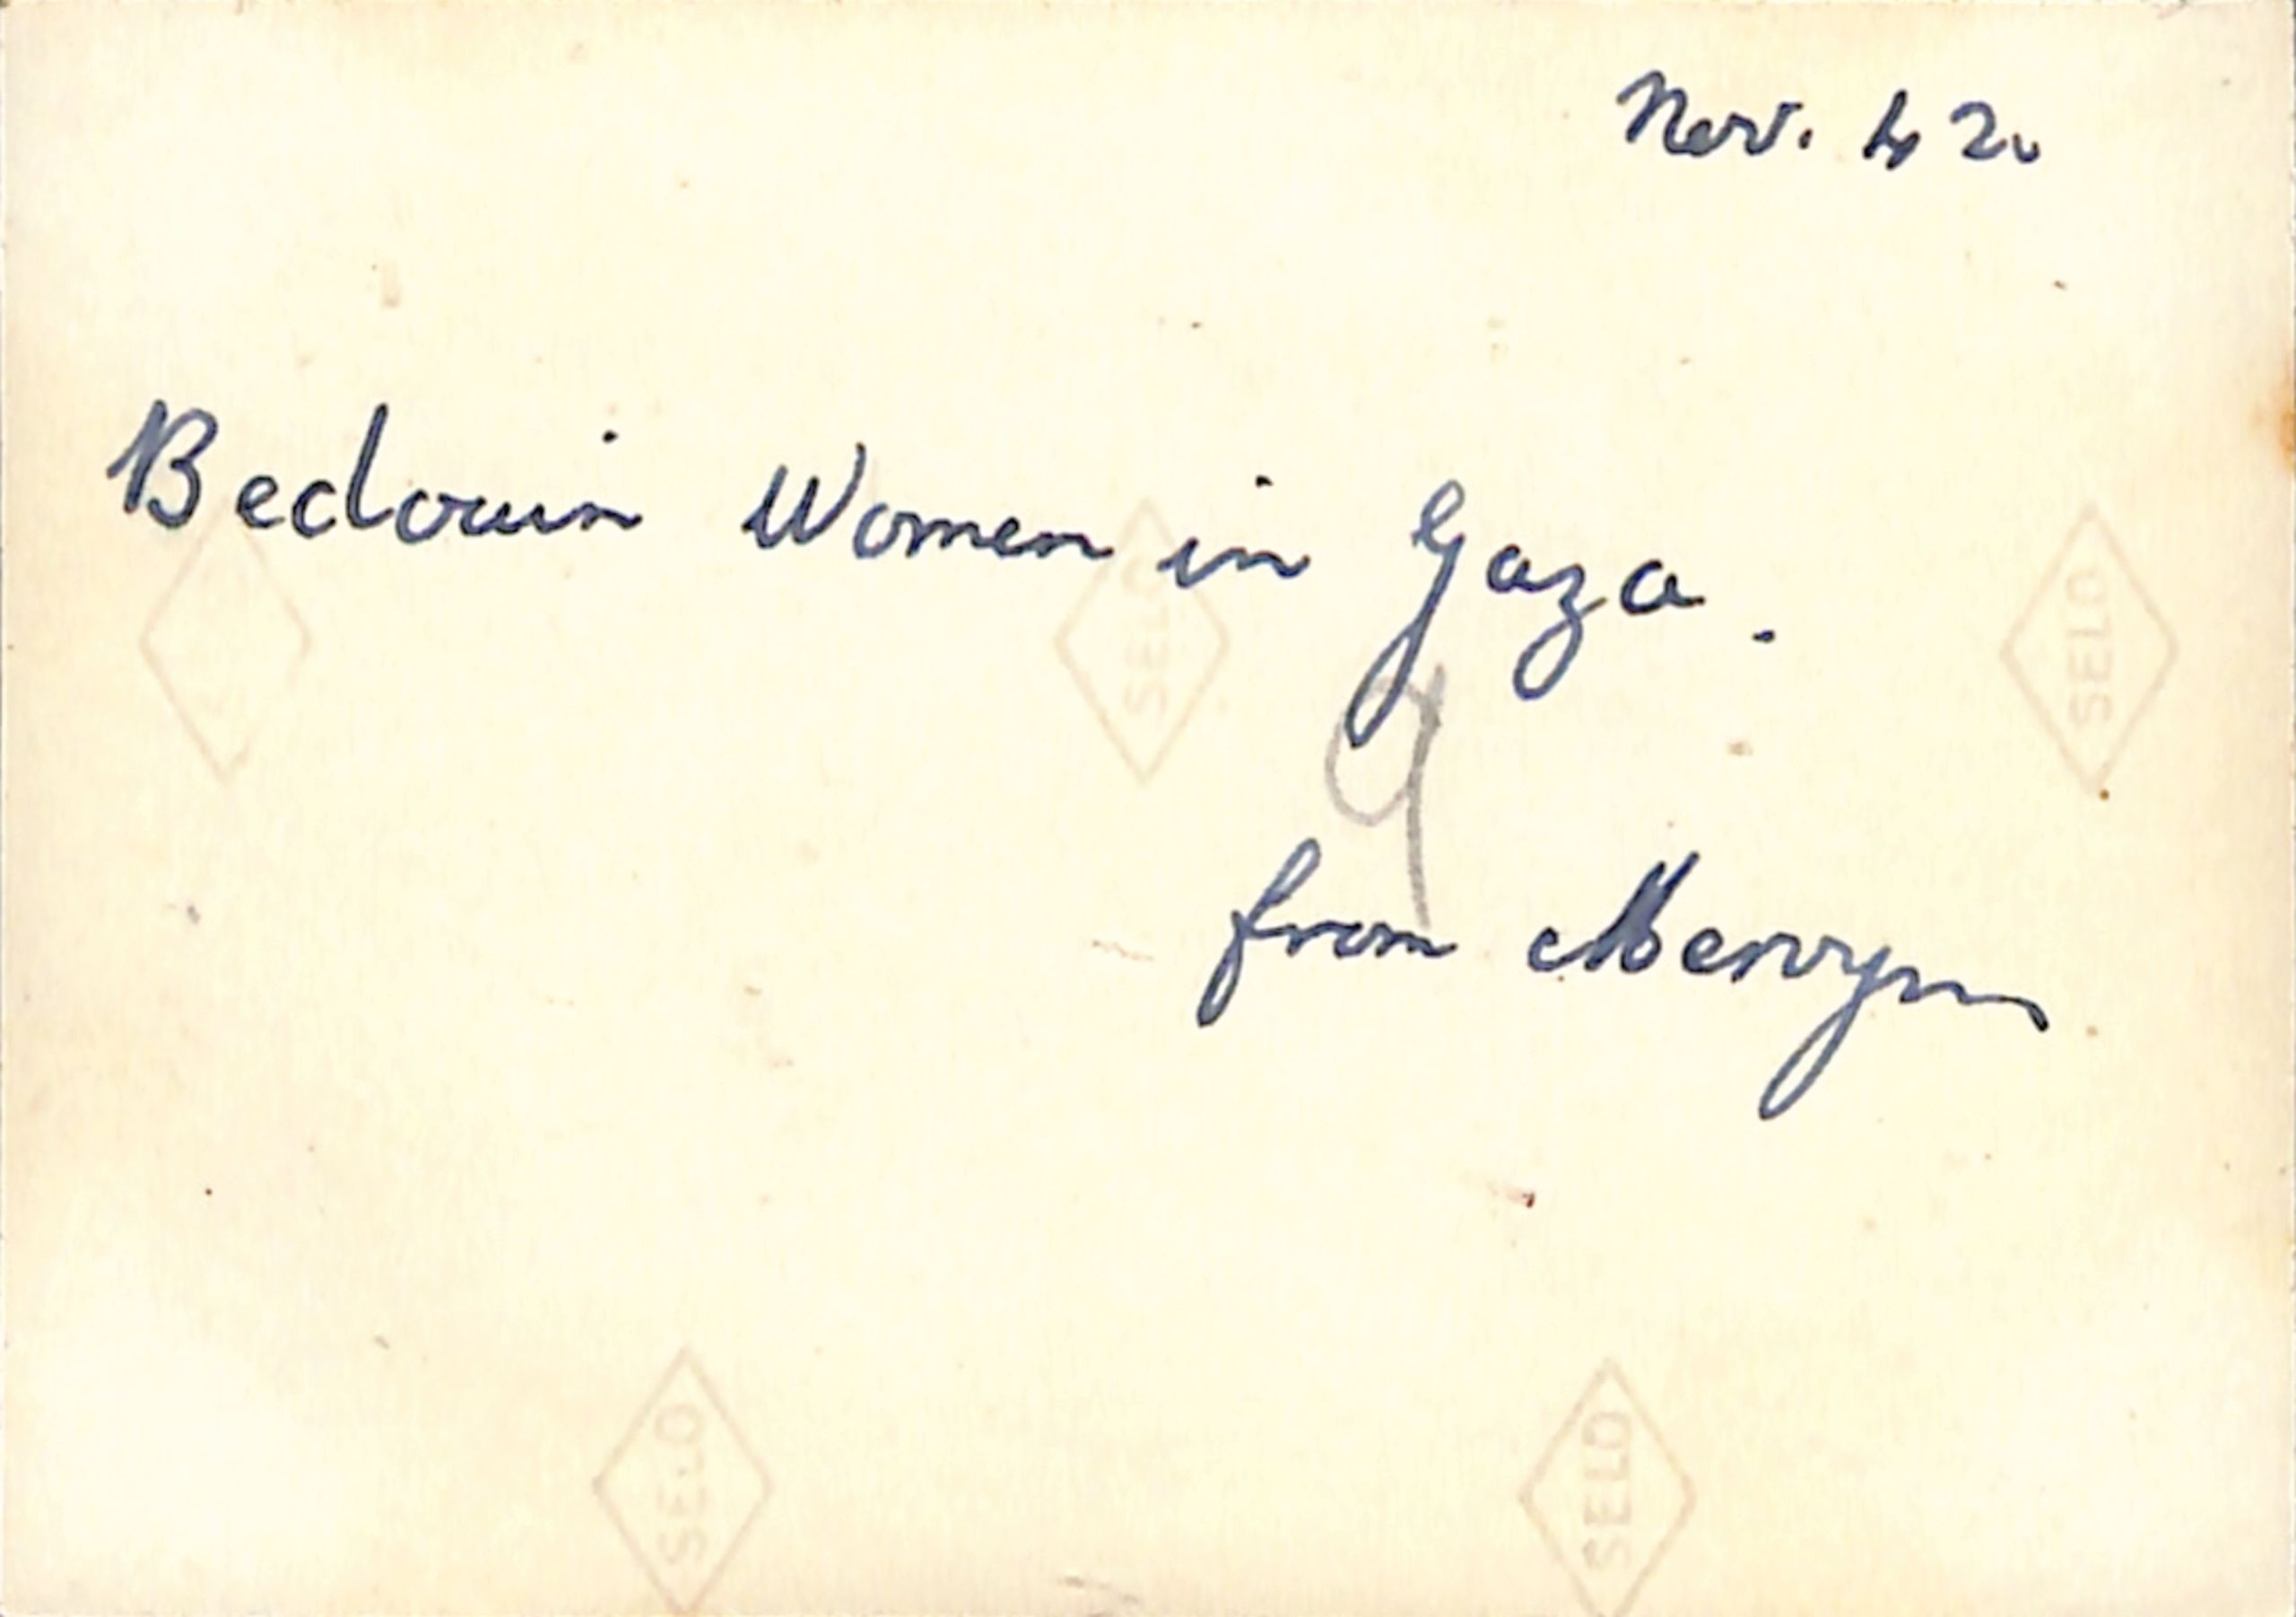 Nov. 42.
Bedouin Women in Gaza.
SELO
SELO
9
from Mervyn
SELO
SELO